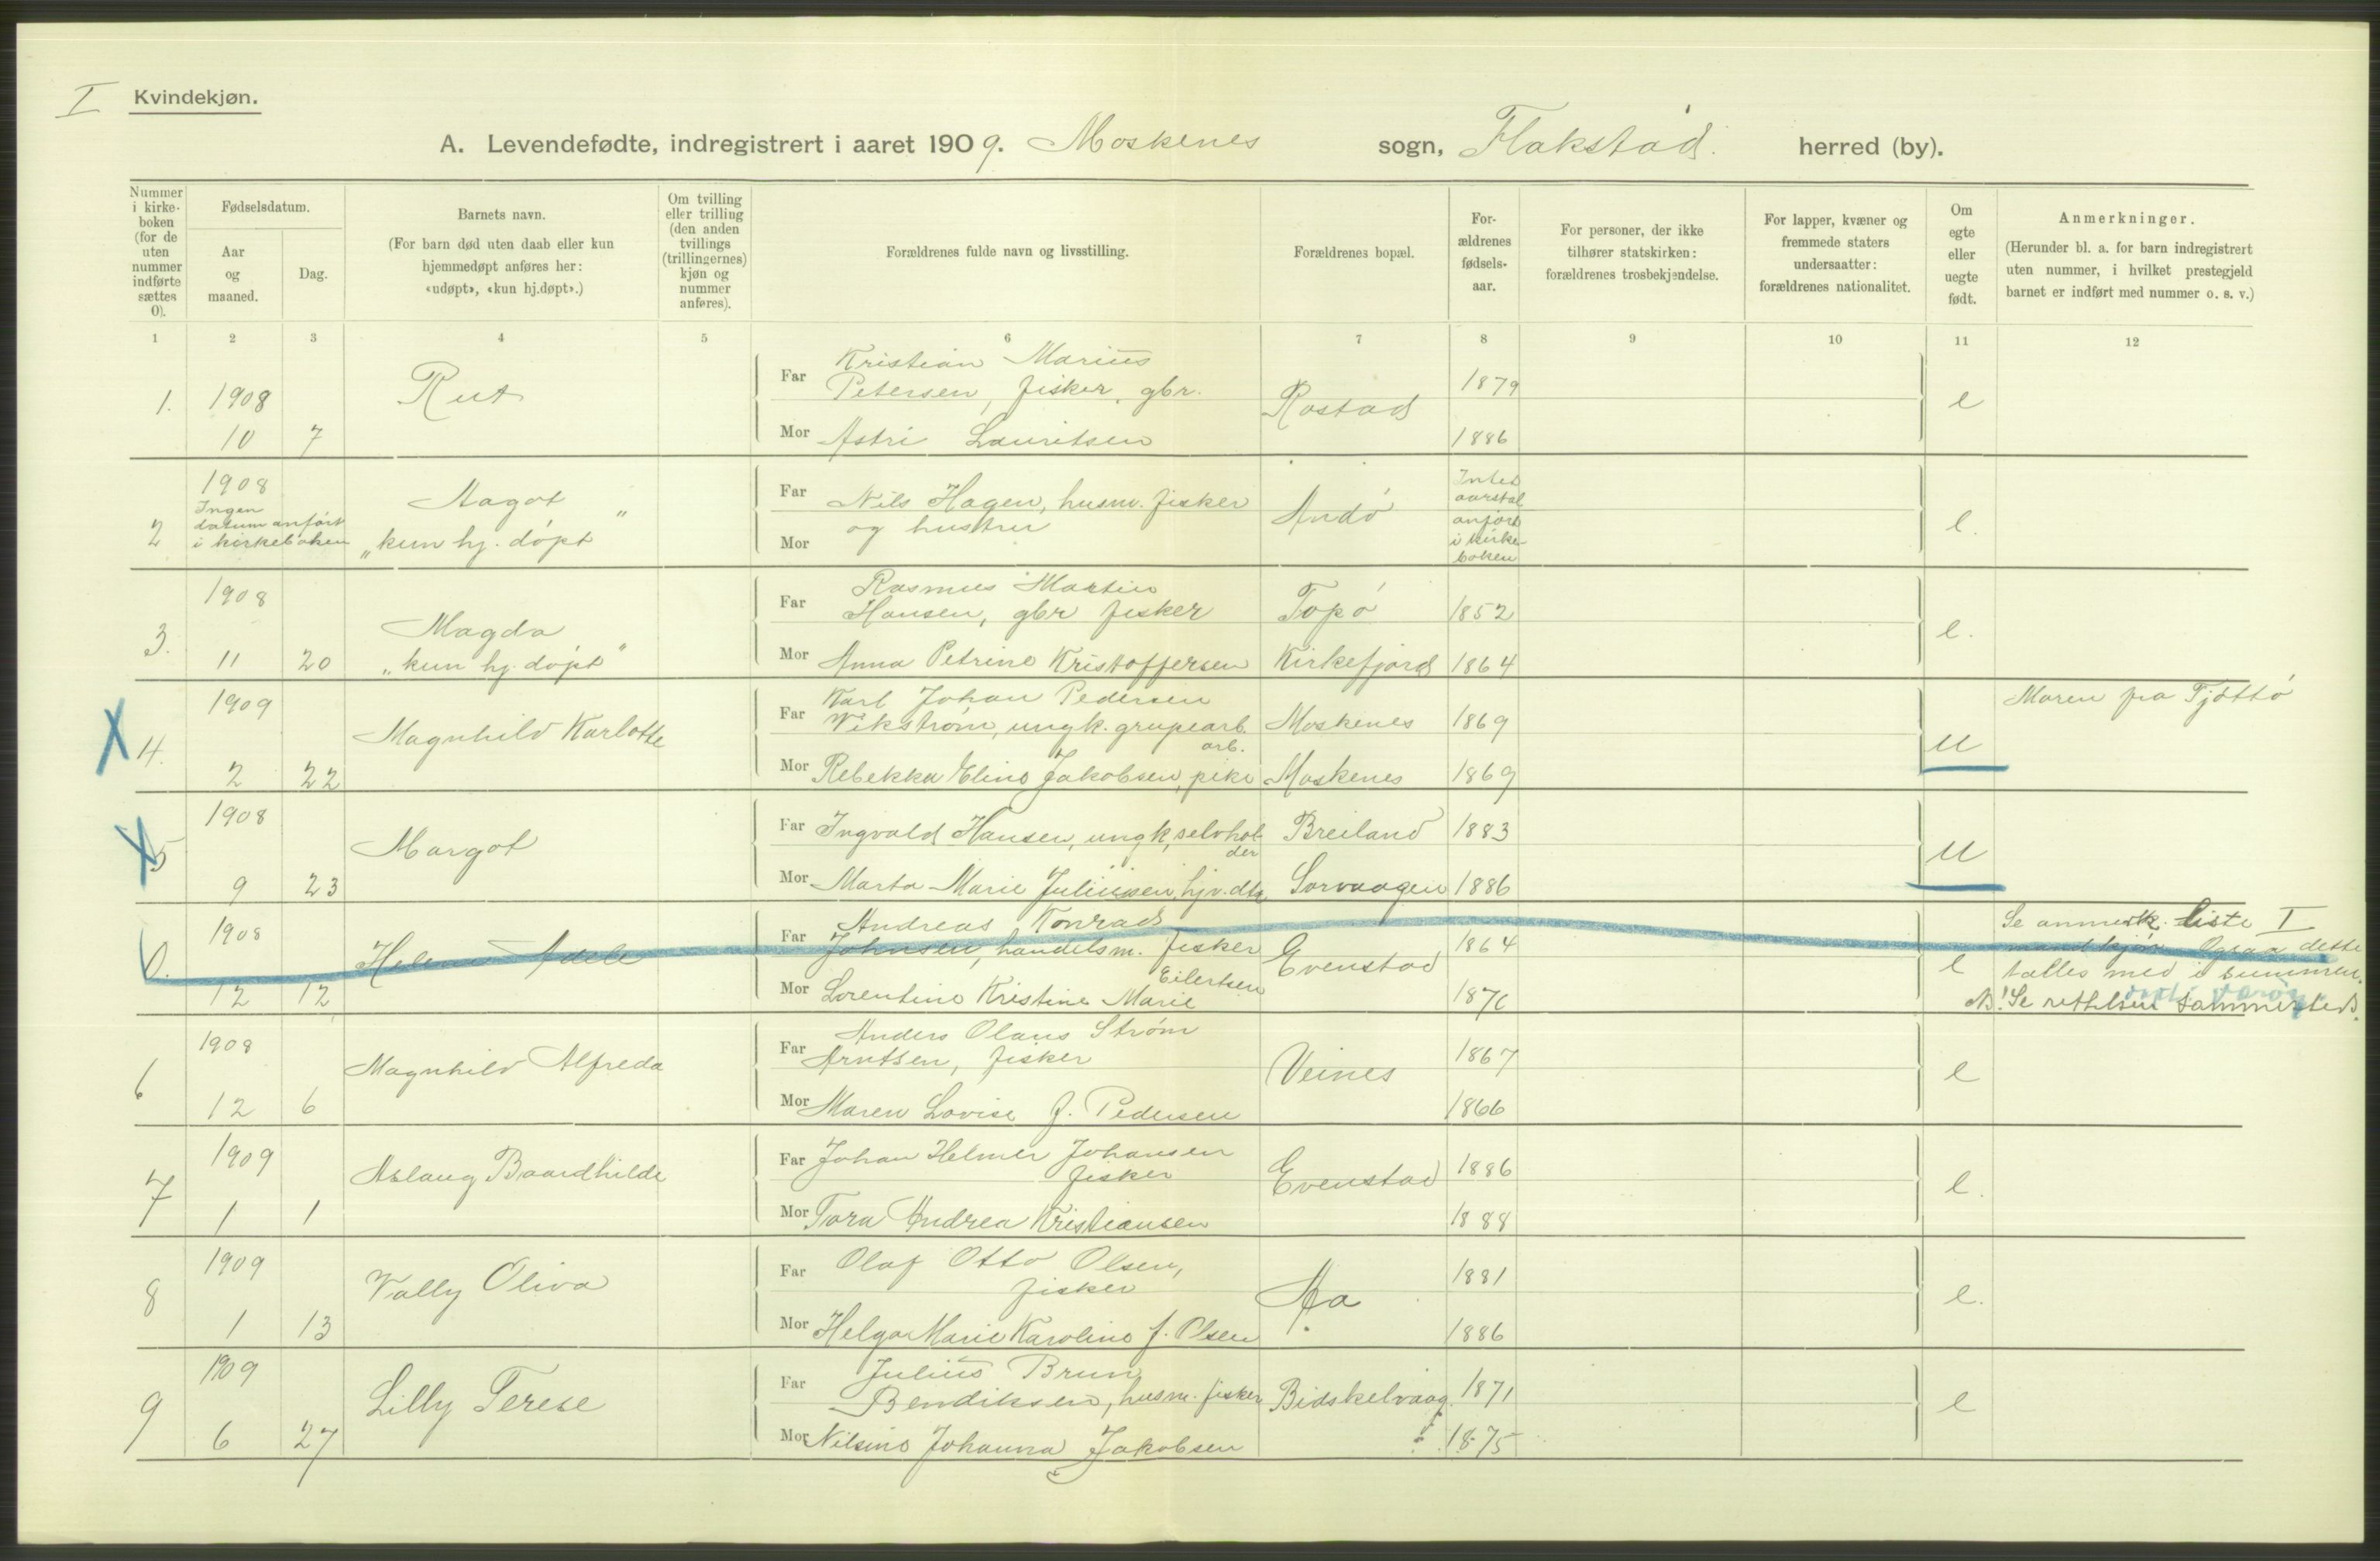 I Kvindekjøn.
A. Levendefødte, indregistrert i aaret 1909. Moskenes sogn, Flakstad. herred (by).
Nummer
i kirke-
boken
(for de
uten
nummer
indførte
sættes
0).
Fødselsdatum.
Aar
og
maaned.
Dag.
Barnets navn.
(For barn død uten daab eller kun
hjemmedøpt anføres her:
«udøpt», «kun hj.døpt».)
Om tvilling
eller trilling
(den anden
tvillings
(trillingernes)
kjøn og
nummer
anføres).
Forældrenes fulde navn og livsstilling.
Forældrenes bopæl.
For-
ældrenes
fødsels-
aar.
For personer, der ikke
tilhører statskirken:
forældrenes trosbekjendelse.
For lapper, kvæner og
fremmede staters
undersaatter:
forældrenes nationalitet.
Om
egte
eller
uegte
født.
Anmerkninger.
(Herunder bl. a. for barn indregistrert
uten nummer, i hvilket prestegjeld
barnet er indført med nummer o. s. v.)
1 2 3 4 5 6 7 8 9 10 11 12
1. 1908
10 7
Rut
Far Kristian Marius
Petersen, fisker, gbr.
Mor Astri Lauritsen
Rostad
1879
1886
e
2 1908
Ingen
datum anført
i kirkeboken
Aagot
„kun hj. døpt"
Far Nils Hagen, husm. fisker
og hustru
Mor
Andø
Intet
aarstal
anført
i kirke-
boken
e.
3. 1908
11 20
Magda
„kun hj. døpt"
Far Rasmus Martin
Hansen, gbr fisker
Mor Anna Petrine Kristoffersen
Topø
Kirkefjord
1852
1864
e.
X 4. 1909
2 22
Magnhild Karlotte
Far Karl Johan Pedersen
Wikstrøm, ungk. grupearb.
arb.
Mor Rebekka Eline Jakobsen, pike
Moskenes
Moskenes
1869
1869
u
Moren fra Tjøttø
X 5 1908
9 23
Margot
Far Ingvald Hansen, ungk, selvhol-
der
Mor Marta Marie Juliussen, hjv. dtr
Breiland
Sørvaagen
1883
1886
u
0. 1908
12 12
Helene Adele
Far Andreas Konrad
Johnsen, handelsm. fisker
Mor Lorentine Kristine Marie
Eilertsen
Evenstad
1864
1876
e
Se anmerk. liste I
mandkjøn. Ogsaa dette
tælles med i summen.
NB! Se rettelsen sammesteds.
6 1908
12 6
Magnhild Alfreda
Far Anders Olaus Strøm
Arntsen, fisker
Mor Maren Lovise f. Pedersen
Veines
1867
1866
e
7 1909
1 1
Aslaug Baardhilde
Far Johan Helmer Johansen
fisker
Mor Tora Andrea Kristiansen
Evenstad
1886
1888
e.
8 1909
1 13
Vally Oliva
Far Olaf Otto Olsen,
fisker
Mor Helga Marie Karoline f. Olsen
Aa
1881
1886
e.
9 1909
6 27
Lilly Terese
Far Julius Brun
Bendiksen, husm. fisker
Mor Nilsine Johanna Jakobsen
Bidskelvaag
1871
1875
e